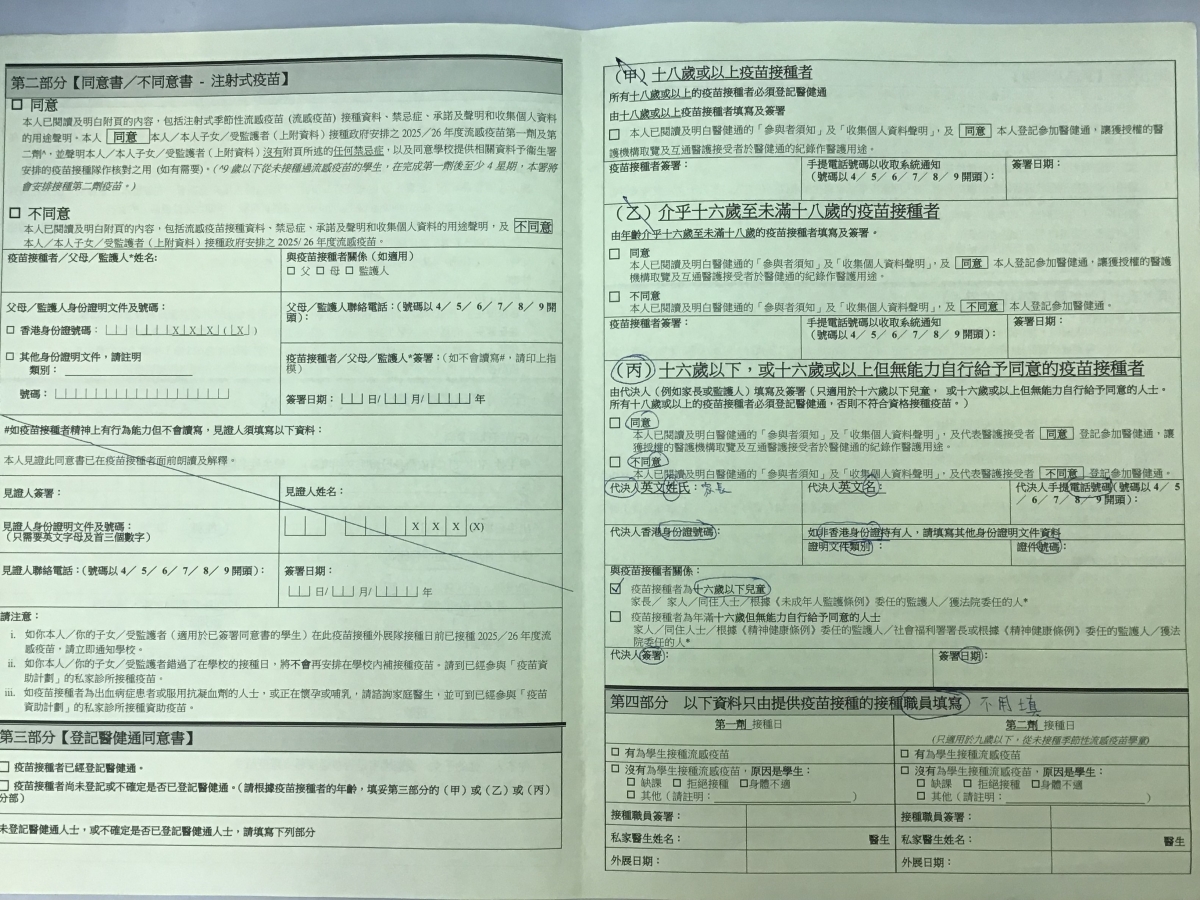 第二部分【同意書／不同意書 - 注射式疫苗】
☐ 同意
本人已閱讀及明白附頁的內容，包括注射式季節性流感疫苗 (流感疫苗) 接種資料、禁忌症、承諾及聲明和收集個人資料
的用途聲明。本人 同意 本人／本人子女／受監護者（上附資料）接種政府安排之 2025／26 年度流感疫苗第一劑及第
二劑^，並聲明本人／本人子女／受監護者（上附資料）沒有附頁所述的任何禁忌症，以及同意學校提供相關資料予衞生署
安排的疫苗接種隊作核對之用 (如有需要)。(^9 歲以下從未接種過流感疫苗的學生，在完成第一劑後至少 4 星期，本署將
會安排接種第二劑疫苗。)
☐ 不同意
本人已閱讀及明白附頁的內容，包括流感疫苗接種資料、禁忌症、承諾及聲明和收集個人資料的用途聲明，及 不同意
本人／本人子女／受監護者（上附資料）接種政府安排之 2025/ 26 年度流感疫苗。
疫苗接種者／父母／監護人*姓名:
與疫苗接種者關係（如適用）
☐ 父 ☐ 母 ☐ 監護人
父母／監護人身份證明文件及號碼：
☐ 香港身份證號碼： X X X ( X )
☐ 其他身份證明文件，請註明
類別：
號碼：
父母／監護人聯絡電話：（號碼以 4／ 5／ 6／ 7／ 8／ 9 開
頭）：
疫苗接種者／父母／監護人*簽署：（如不會讀寫#，請印上指
模）
簽署日期： 日/ 月/ 年
#如疫苗接種者精神上有行為能力但不會讀寫，見證人須填寫以下資料：
本人見證此同意書已在疫苗接種者面前朗讀及解釋。
見證人簽署：
見證人姓名：
見證人身份證明文件及號碼：
（只需要英文字母及首三個數字）
X X X (X)
見證人聯絡電話：（號碼以 4／ 5／ 6／ 7／ 8／ 9 開頭）：
簽署日期：
日/ 月/ 年
請注意：
i. 如你本人／你的子女／受監護者（適用於已簽署同意書的學生）在此疫苗接種外展隊接種日前已接種 2025／26 年度流
感疫苗，請立即通知學校。
ii. 如你本人／你的子女／受監護者錯過了在學校的接種日，將不會再安排在學校內補接種疫苗。請到已經參與「疫苗資
助計劃」的私家診所接種疫苗。
iii. 如疫苗接種者為出血病症患者或服用抗凝血劑的人士，或正在懷孕或哺乳，請諮詢家庭醫生，並可到已經參與「疫苗
資助計劃」的私家診所接種資助疫苗。
第三部分【登記醫健通同意書】
☐ 疫苗接種者已經登記醫健通。
☐ 疫苗接種者尚未登記或不確定是否已登記醫健通。（請根據疫苗接種者的年齡，填妥第三部分的（甲）或（乙）或（丙）
分部）
未登記醫健通人士，或不確定是否已登記醫健通人士，請填寫下列部分
（甲）十八歲或以上疫苗接種者
所有十八歲或以上的疫苗接種者必須登記醫健通
由十八歲或以上疫苗接種者填寫及簽署
☐ 本人已閱讀及明白醫健通的「參與者須知」及「收集個人資料聲明」，及 同意 本人登記參加醫健通，讓獲授權的醫
護機構取覽及互通醫護接受者於醫健通的紀錄作醫護用途。
疫苗接種者簽署：
手提電話號碼以收取系統通知
（號碼以 4／ 5／ 6／ 7／ 8／ 9 開頭）：
簽署日期：
（乙）介乎十六歲至未滿十八歲的疫苗接種者
由年齡介乎十六歲至未滿十八歲的疫苗接種者填寫及簽署。
☐ 同意
本人已閱讀及明白醫健通的「參與者須知」及「收集個人資料聲明」，及 同意 本人登記參加醫健通，讓獲授權的醫護
機構取覽及互通醫護接受者於醫健通的紀錄作醫護用途。
☐ 不同意
本人已閱讀及明白醫健通的「參與者須知」及「收集個人資料聲明」，及 不同意 本人登記參加醫健通。
疫苗接種者簽署：
手提電話號碼以收取系統通知
（號碼以 4／ 5／ 6／ 7／ 8／ 9 開頭）：
簽署日期：
（丙）十六歲以下，或十六歲或以上但無能力自行給予同意的疫苗接種者
由代決人（例如家長或監護人）填寫及簽署（只適用於十六歲以下兒童， 或十六歲或以上但無能力自行給予同意的人士。
所有十八歲或以上的疫苗接種者必須登記醫健通，否則不符合資格接種疫苗。）
☐ 同意
本人已閱讀及明白醫健通的「參與者須知」及「收集個人資料聲明」，及代表醫護接受者 同意 登記參加醫健通，讓
獲授權的醫護機構取覽及互通醫護接受者於醫健通的紀錄作醫護用途。
☐ 不同意
本人已閱讀及明白醫健通的「參與者須知」及「收集個人資料聲明」，及代表醫護接受者 不同意 登記參加醫健通。
代決人英文姓氏：家長
代決人英文名：
代決人手提電話號碼（號碼以 4／ 5
／ 6／ 7／ 8／ 9 開頭）：
代決人香港身份證號碼：
如非香港身份證持有人，請填寫其他身份證明文件資料
證明文件類別：
證件號碼：
與疫苗接種者關係：
☑ 疫苗接種者為十六歲以下兒童
家長／ 家人／同住人士／根據《未成年人監護條例》委任的監護人／獲法院委任的人*
☐ 疫苗接種者為年滿十六歲但無能力自行給予同意的人士
家人／同住人士／根據《精神健康條例》委任的監護人／社會福利署署長或根據《精神健康條例》委任的監護人／獲法
院委任的人*
代決人簽署：
簽署日期：
第四部分 以下資料只由提供疫苗接種的接種職員填寫 不用填
第一劑 接種日
第二劑 接種日
(只適用於九歲以下，從未接種季節性流感疫苗學童)
☐ 有為學生接種流感疫苗
☐ 有為學生接種流感疫苗
☐ 沒有為學生接種流感疫苗，原因是學生：
☐ 缺課 ☐ 拒絕接種 ☐身體不適
☐ 其他（請註明： ）
☐ 沒有為學生接種流感疫苗，原因是學生：
☐ 缺課 ☐ 拒絕接種 ☐身體不適
☐ 其他（請註明： ）
接種職員簽署：
接種職員簽署：
私家醫生姓名： 醫生
私家醫生姓名： 醫生
外展日期：
外展日期：